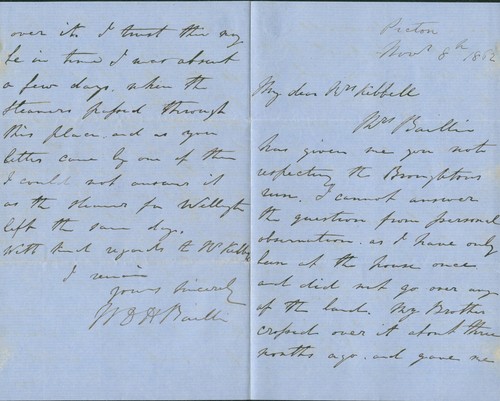 Picton
Novr 8th 1862
My dear Mr Kibbell
Mrs Baillie
has given me you note
respecting the Broughtons
run. I cannot answer
the question from personal
observation. as I have only
been at the house once
and did not go over any
of the land. My Brother
crossed over it about three
months ago. and gave me
over it. I trust this may
be in time I was absent
a few days. when the
steamers passed through
this place. and as your
letter came by one of them
I could not answer it
as the steamer for Wellington
left the same day.
With kind regards to Mr Kibbell
I remain
yours sincerely
W D H Baillie